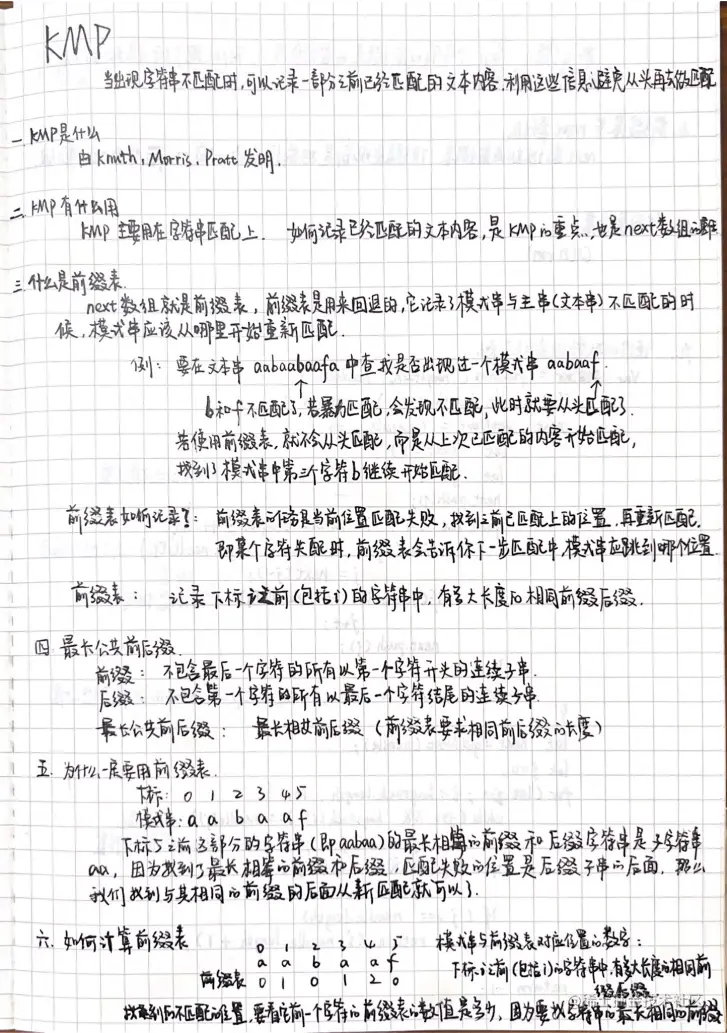 KMP
当出现字符串不匹配时,可以记录一部分之前已经匹配的文本内容,利用这些信息避免从头再去做匹配
一 KMP是什么
由Knuth, Morris, Pratt 发明.
二 KMP有什么用
KMP 主要用在字符串匹配上. 如何记录已经匹配的文本内容,是KMP的重点,也是next数组的
三 什么是前缀表
next数组就是前缀表,前缀表是用来回退的,它记录了模式串与主串(文本串)不匹配的时
候,模式串应该从哪里开始重新匹配.
例: 要在文本串 aabaabaafa 中查找是否出现过一个模式串 aabaaf.
b和f不匹配了,若暴力匹配,会发现不匹配,此时就要从头匹配了.
若使用前缀表,就不会从头匹配,而是从上次已匹配的内容开始匹配,
找到了模式串中第三个字符b继续开始匹配.
前缀表如何记录?: 前缀表的任务是当前位置匹配失败,找到之前已匹配上的位置,再重新匹配.
即某个字符失配时,前缀表会告诉你下一步匹配中,模式串应跳到哪个位置.
前缀表: 记录下标i之前(包括i)的字符串中,有多大长度的相同前缀后缀.
四 最长公共前后缀.
前缀: 不包含最后一个字符的所有以第一个字符开头的连续子串.
后缀: 不包含第一个字符的所有以最后一个字符结尾的连续子串.
最长公共前后缀: 最长相等前后缀 (前缀表要求相同前后缀的长度)
五. 为什么一定要用前缀表.
下标: 0 1 2 3 4 5
模式串: a a b a a f
下标5之前这部分的字符串(即aabaa)的最长相等的前缀和后缀字符串是子字符串
aa, 因为找到了最长相等的前缀和后缀,匹配失败的位置是后缀子串的后面,那么
我们找到与其相同的前缀的后面从新匹配就可以了.
六. 如何计算前缀表
0 1 2 3 4 5
a a b a a f
前缀表 0 1 0 1 2 0
模式串与前缀表对应位置的数字:
下标i之前(包括i)的字符串中,有多大长度的相同前
缀后缀.
找到的不匹配的位置,要看它前一个字符的前缀表的数值是多少,因为要找字符串的最长相同的前缀